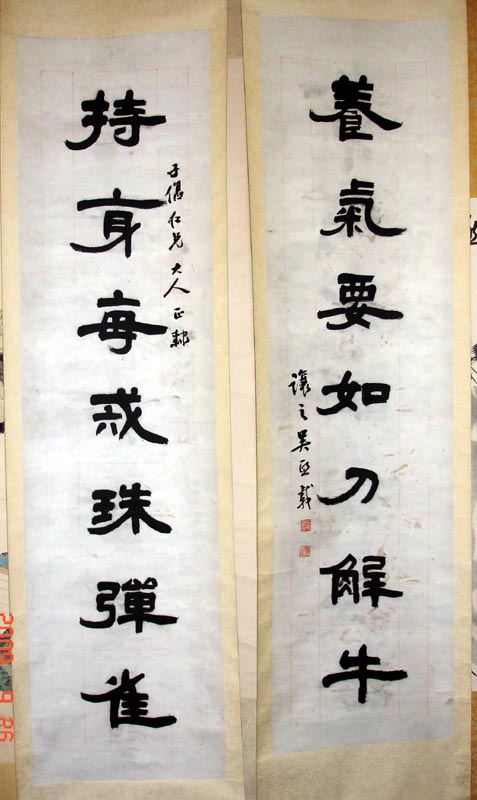 持身每戒珠彈雀
仁兄大人正隸
養氣要如刀解牛
讓之吳熙載
2009 9 26